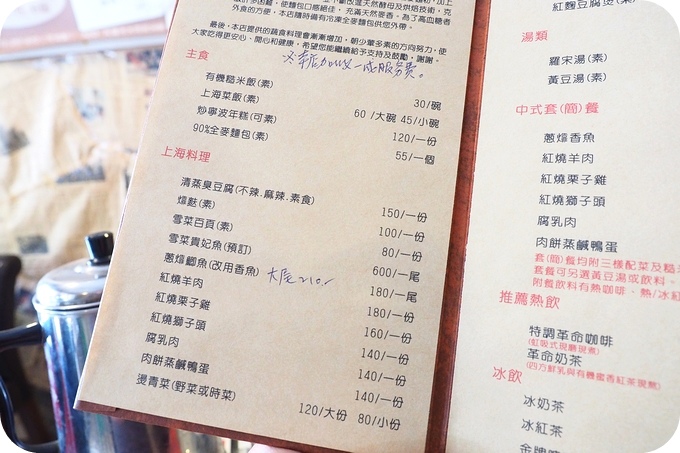 外食的方便。本店隨時備有冷凍全麥麵包供您外帶。
最後，本店提供的蔬食料理會漸漸增加，朝少葷多素的方向努力，使
大家吃得更安心、開心和健康，希望您能繼續給予支持及鼓勵，謝謝。
主食
有機糙米飯(素) 30/碗
上海菜飯(素) 60/大碗 45/小碗
炒寧波年糕(可素) 120/一份
90%全麥麵包(素) 55/一個
上海料理
清蒸臭豆腐(不辣.麻辣.素食) 150/一份
焅麩(素) 100/一份
雪菜百頁(素) 80/一份
雪菜貴妃魚(預訂) 600/一尾
蔥焅鯽魚(改用香魚) 大尾210./ 180/一尾
紅燒羊肉 180/一份
紅燒栗子雞 160/一份
紅燒獅子頭 140/一份
腐乳肉 140/一份
肉餅蒸鹹鴨蛋 140/一份
燙青菜(野菜或時菜) 120/大份 80/小份
湯類
羅宋湯(素)
黃豆湯(素)
中式套(簡)餐
蔥焅香魚
紅燒羊肉
紅燒栗子雞
紅燒獅子頭
腐乳肉
肉餅蒸鹹鴨蛋
套(簡)餐均附三樣配菜及糙
套餐可另選黃豆湯或飲料。
附餐飲料有熱咖啡、熱/冰紅
推薦熱飲
特調革命咖啡
(虹吸式現磨現煮)
革命奶茶
(四方鮮乳與有機蜜香紅茶現煮)
冰飲
冰奶茶
冰紅茶